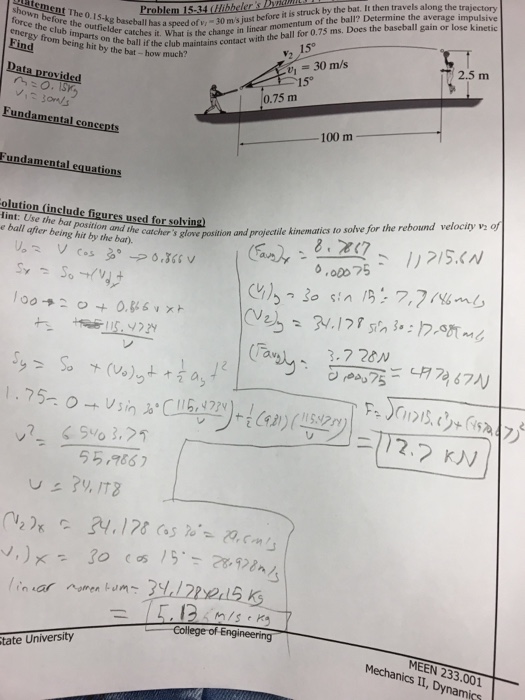 Problem 15-34 (Hibbeler's
The 0.15-kg baseball has a speed of v₁ = 30 m/s just before it is struck by the bat. It then travels along the trajectory
shown before the outfielder catches it. What is the change in linear momentum of the ball? Determine the average impulsive
force the club imparts on the ball if the club maintains contact with the ball for 0.75 ms. Does the baseball gain or lose kinetic
energy from being hit by the bat – how much?
Find
Data provided
m = 0.15kg
v₁ = 30m/s
v₂ 15°
v₁ = 30 m/s
15°
0.75 m
2.5 m
100 m
Fundamental concepts
Fundamental equations
Solution (include figures used for solving)
Hint: Use the bat position and the catcher's glove position and projectile kinematics to solve for the rebound velocity v₂ of
e ball after being hit by the bat).
V₀ = V cos 30° → 0.866 V
Sx = S₀ + (V₀)t
100 = 0 + 0.866 v × t
t = 115.4734
Sy = S₀ + (V₀)y t + ½ ay t²
1.75 = 0 + V sin 30° (115.4734/v) + ½ (9.81) (115.4734/v)
v² = 65403.79
55.9867
v = 34.178
(V₂)x = 34.178 cos 30° =
V₁)x = 30 cos 15° = 28.978m/s
linear momentum = 34.178 × 0.15 kg
= 5.13 m/s · kg
(Favg)x = 8.7867
0.00075
= 11715.6N
(V₁)y = 30 sin 15° = 7.7646 m/s
(V₂)y = 34.178 sin 30 =
(Favg)y = 3.728N
0.00075
= 4970.67N
F = √(11715.6²) + (4970.67)²
= 12.7 KN
State University
College of Engineering
MEEN 233.001
Mechanics II, Dynamics